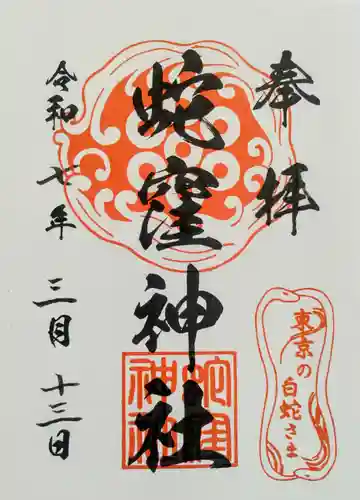 奉拝
東京の
白蛇さま
蛇窪神社
蛇窪
神社
令和七年三月十三日